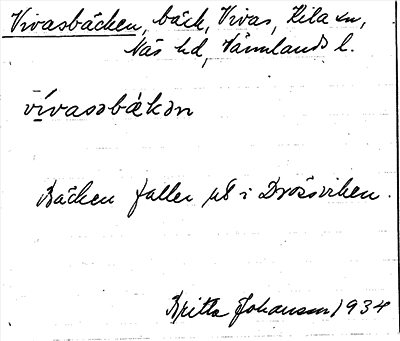 Vivasbäcken, bäck, Vivas, Kila sn,
Näs hd, Värmlands l.
vívasəbäkən
Bäcken faller ut i Drösviken.
Britta Johansson 1934